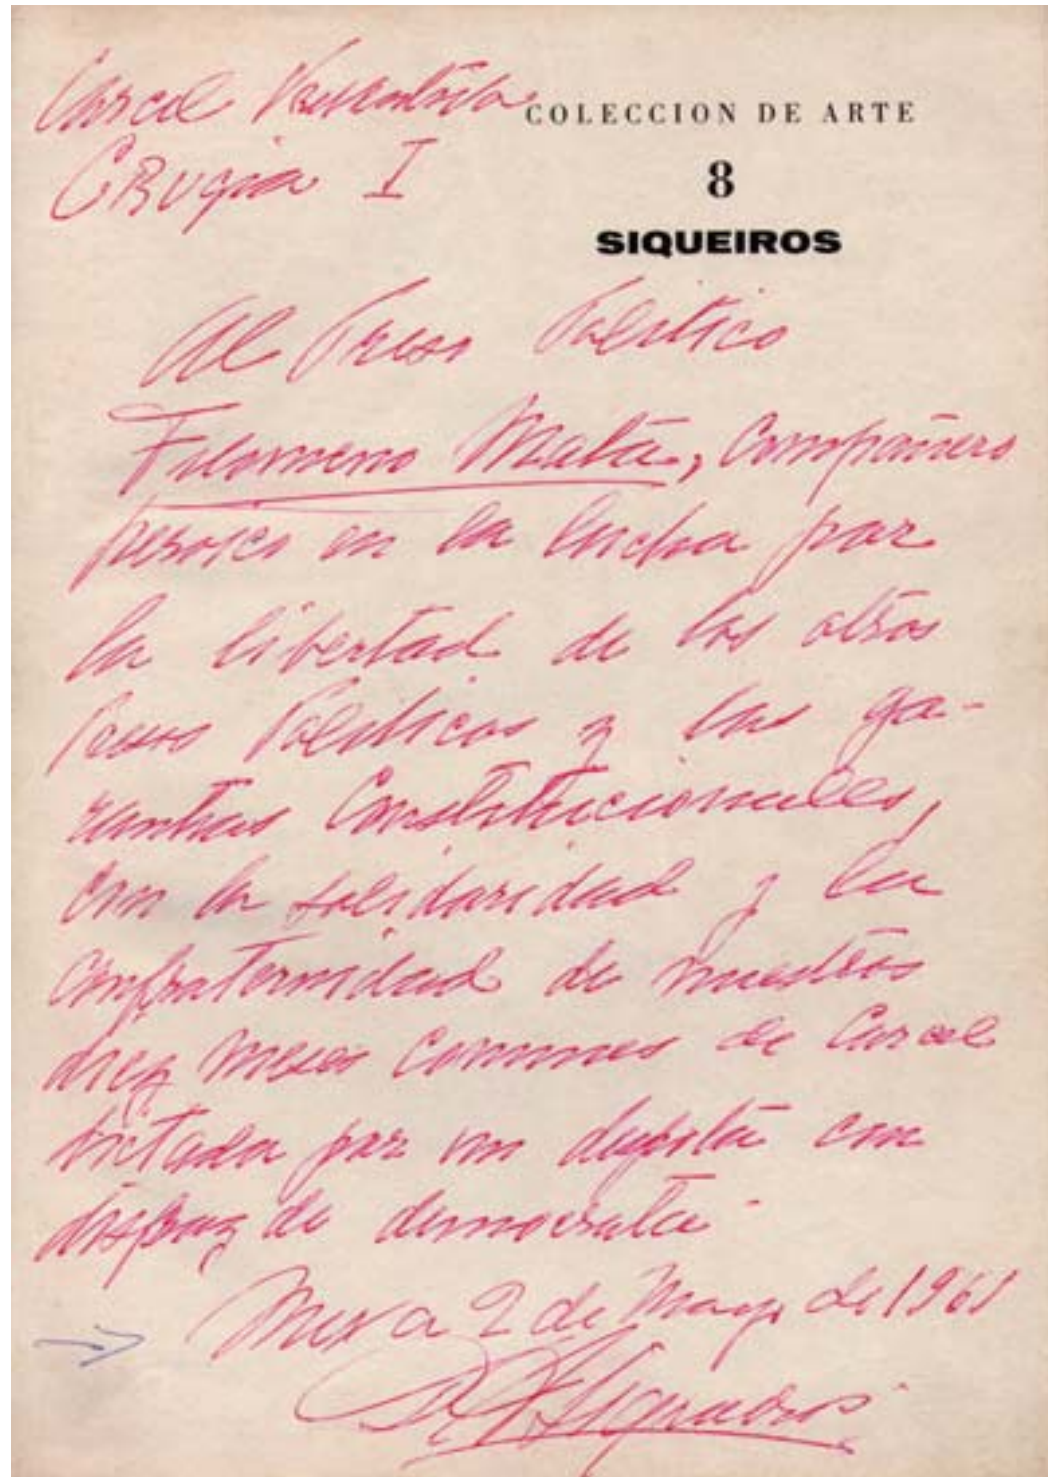 Carcel Preventiva
COLECCION DE ARTE
Crugia I
8
SIQUEIROS
Al Preso Politico
Filomeno Mata, Compañero
heroico en la lucha por
la libertad de los otros
Presos Politicos y las ga-
rantias Constitucionales,
con la solidaridad y la
confraternidad de nuestros
diez meses comunes de Carcel
dictada por un despota con
disfraz de democrata.
Mex a 2 de Mayo de 1961
Siqueiros